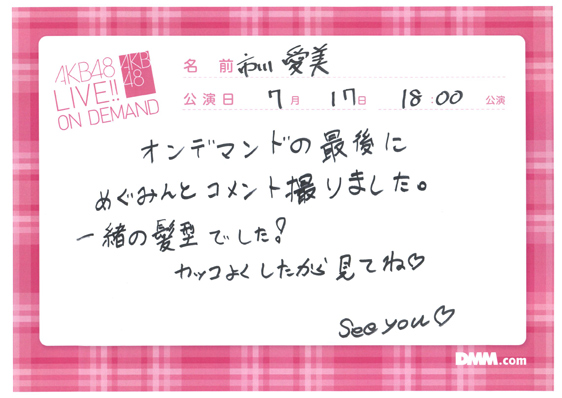 AKB48
LIVE!!
ON DEMAND
AKB
48
名 前 市川 愛美
公演日 7月 17日 18:00 公演
オンデマンドの最後に
めぐみんとコメント撮りました。
一緒の髪型でした!
カッコよくしたから見てね♡
See you♡
DMM.com